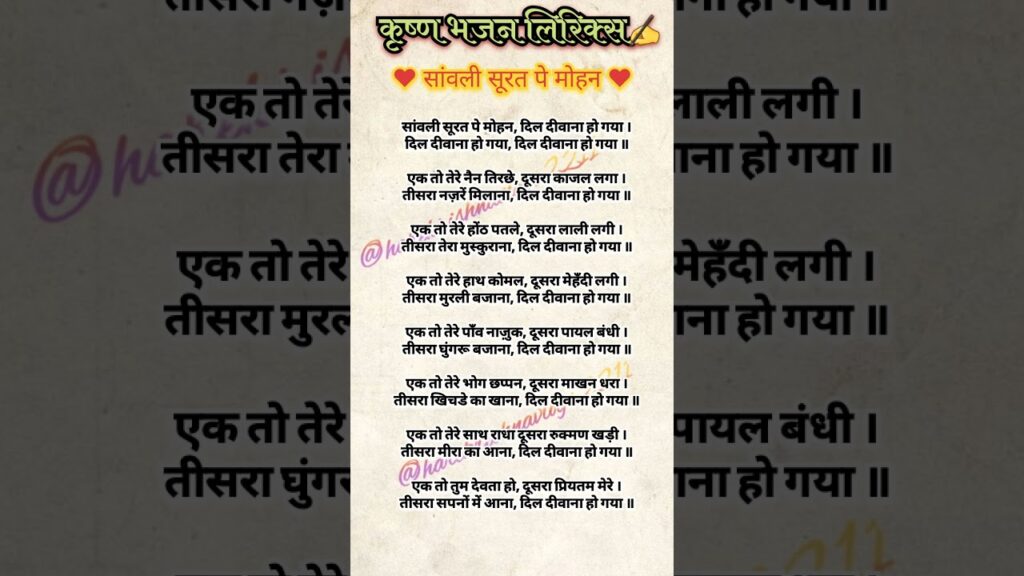 कृष्ण भजन लिरिक्स✍️
❤ सांवली सूरत पे मोहन ❤
सांवली सूरत पे मोहन, दिल दीवाना हो गया ।
दिल दीवाना हो गया, दिल दीवाना हो गया ॥
एक तो तेरे नैन तिरछे, दूसरा काजल लगा ।
तीसरा नज़रें मिलाना, दिल दीवाना हो गया ॥
एक तो तेरे होंठ पतले, दूसरा लाली लगी ।
तीसरा तेरा मुस्कुराना, दिल दीवाना हो गया ॥
एक तो तेरे हाथ कोमल, दूसरा मेहँदी लगी ।
तीसरा मुरली बजाना, दिल दीवाना हो गया ॥
एक तो तेरे पाँव नाज़ुक, दूसरा पायल बंधी ।
तीसरा घुंगरू बजाना, दिल दीवाना हो गया ॥
एक तो तेरे भोग छप्पन, दूसरा माखन धरा ।
तीसरा खिचडे का खाना, दिल दीवाना हो गया ॥
एक तो तेरे साथ राधा दूसरा रुक्मण खड़ी ।
तीसरा मीरा का आना, दिल दीवाना हो गया ॥
एक तो तुम देवता हो, दूसरा प्रियतम मेरे ।
तीसरा सपनों में आना, दिल दीवाना हो गया ॥